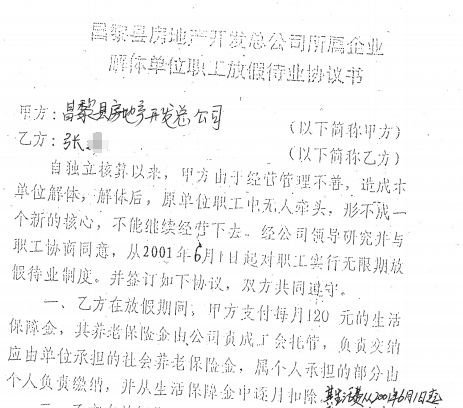 昌黎县房地产开发总公司所属企业
解体单位职工放假待业协议书
甲方：昌黎县房地产开发总公司
（以下简称甲方）
乙方：张
（以下简称乙方）
自独立核算以来，甲方由于经营管理不善，造成本
单位解体，解体后，原单位职工中无人牵头，形不成一
个新的核心，不能继续经营下去。经公司领导研究并与
职工协商同意，从2001年6月1日起对职工实行无限期放
假待业制度。并签订如下协议，双方共同遵守。
一、乙方在放假期间，甲方支付每月120元的生活
保障金，其养老保险金由公司责成工会托管，负责交纳
应由单位承担的社会养老保险金，属个人承担的部分由
个人负责缴纳，并从生活保障金中逐月扣除。从2001年6月1日起